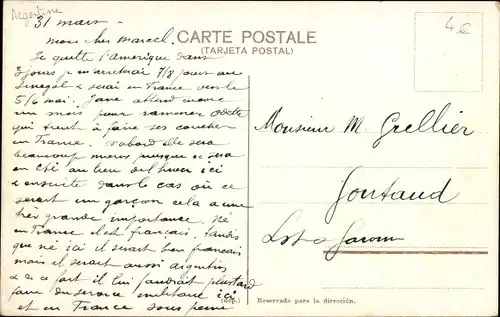 Argentine
4€
CARTE POSTALE
(TARJETA POSTAL)
31 mars
mon cher Marcel.
Je quitte l'Amerique dans
3 jours je m'arreterai 7/8 jours au
Senegal & serai en France vers le
5/6 mai. Jane attend encore
un mois pour ramener Odette
qui tient à faire ses couches
en France. D'abord elle sera
beaucoup mieux puisque ce sera
en été au lieu de l'hiver ici
& ensuite dans le cas où ce
serait un garçon cela a une
très grande importance. Né
en France il est français. tandis
que né ici il serait bien français
mais il serait aussi argentin
& de ce fait il lui faudrait plus tard
faire du service militaire ici
et en France sous peine
Monsieur M. Grellier
Lot & Garonne
(Dep.)
Reservado para la dirección.